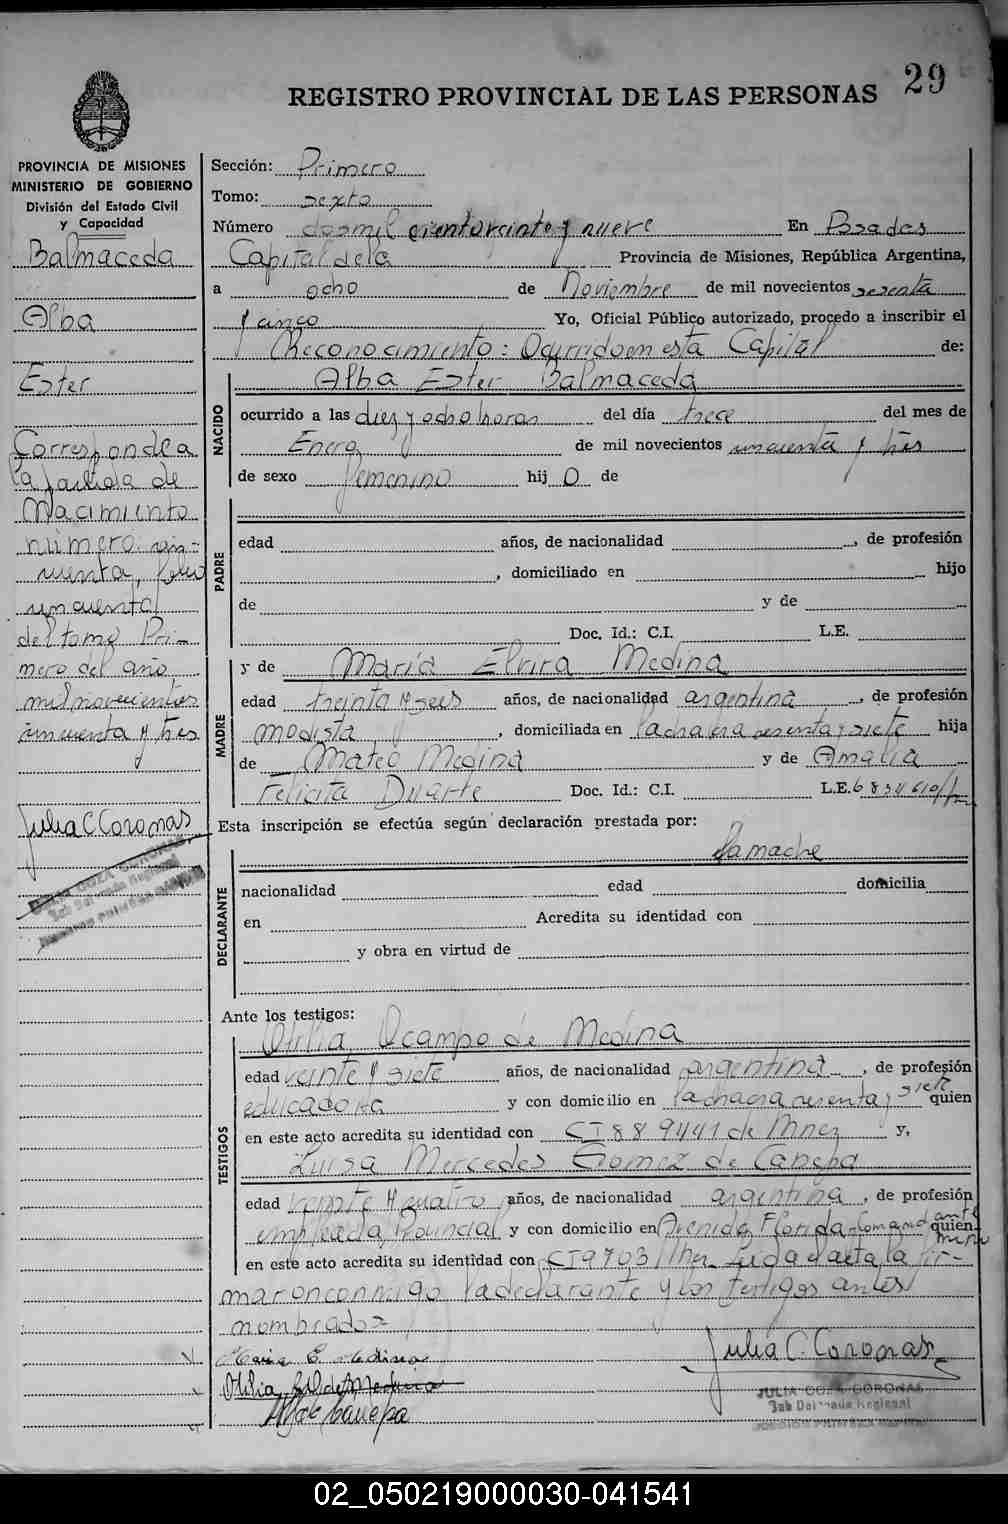 29
REGISTRO PROVINCIAL DE LAS PERSONAS
PROVINCIA DE MISIONES
MINISTERIO DE GOBIERNO
División del Estado Civil
y Capacidad
Balmaceda
Alba
Ester
Corresponde a
la partida de
Nacimiento
número cin-
cuenta, folio
cincuenta
del tomo Pri-
mero del año
mil novecientos
cincuenta y tres
Julia C Coronas
JULIA COZA CORONAS
Sub Delegada Regional
Sección: Primero
Tomo: sexto
Número dosmil cientoveinte y nueve En Posadas
Capital de la Provincia de Misiones, República Argentina,
a ocho de Noviembre de mil novecientos sesenta
y cinco Yo, Oficial Público autorizado, procedo a inscribir el
Reconocimiento: Ocurrido en esta Capital de:
NACIDO
Alba Ester Balmaceda
ocurrido a las diez y ocho horas del día trece del mes de
Enero de mil novecientos cincuenta y tres
de sexo femenino hij o de
PADRE
edad años, de nacionalidad , de profesión
, domiciliado en hijo
de y de
Doc. Id.: C.I. L.E.
MADRE
y de María Elvira Medina
edad treinta y seis años, de nacionalidad argentina , de profesión
modista , domiciliada en la chacra sesenta y siete hija
de Mateo Medina y de Amalia
Felicita Duarte Doc. Id.: C.I. L.E. 6834610
Esta inscripción se efectúa según declaración prestada por:
DECLARANTE
la madre
nacionalidad edad domicilia
en Acredita su identidad con
y obra en virtud de
Ante los testigos:
TESTIGOS
Otilia Ocampo de Medina
edad veinte y siete años, de nacionalidad argentina , de profesión
educadora y con domicilio en la chacra sesenta y siete quien
en este acto acredita su identidad con CI 889441 de Mnes y,
Luisa Mercedes Gomez de Canepa
edad veinte y cuatro años, de nacionalidad argentina , de profesión
empleada Provincial y con domicilio en Avenida Florida Comandante quien
en este acto acredita su identidad con CI 9703 Leida el acta la fir-
maron conmigo la declarante y los testigos antes
nombrados
Maria E. Medina
Otilia de Medina
de Canepa
Julia C. Coronas
JULIA COZA CORONAS
Sub Delegada Regional
02_050219000030-041541